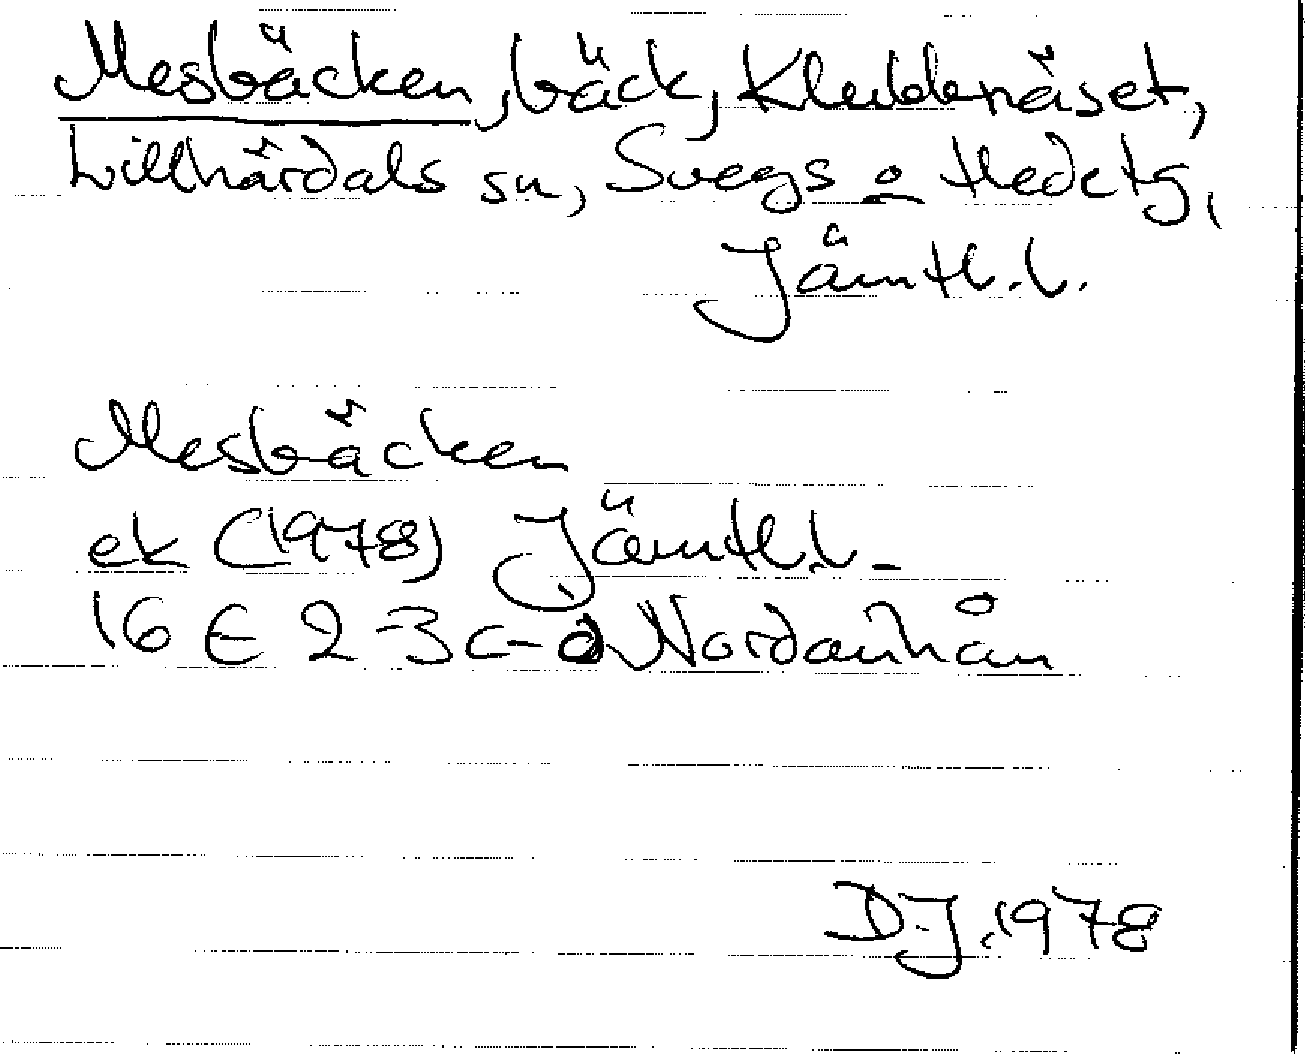 Mesbäcken, bäck, Klubbnäset,
Lillhärdals sn, Svegs o Hedetg,
Jämtl.l.
Mesbäcken
ek (1978) Jämtl.l.
16 E 2-3 c-d Nordanhån
D.J. 1978